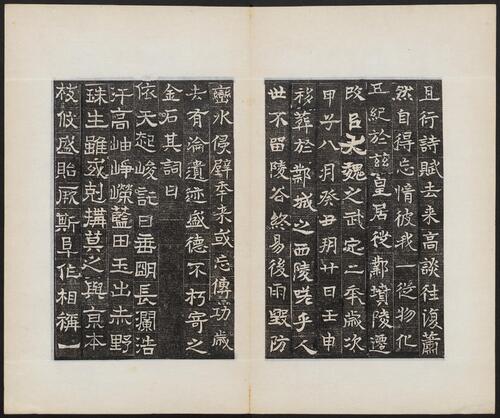 且行詩賦去来高談往復蕭
然自得忘情彼我一從物化
五紀於兹皇居從鄴墳陵遷
改㠯大魏之武定二秊歲次
甲子八月癸丑朔廿日壬申
移葬於鄴城之西陵嗟乎人
世不留陵谷終易後雨毀防
巒水侵壁秊来或忘傳功歲
去有淪遺迹盛德不朽寄之
金石其詞曰
依天起峻託日垂明長瀾浩
汗高岫崢嶸藍田玉出赤野
珠生雖或剋搆莫之與京本
枝攸盛貽厥斯早作相稱一